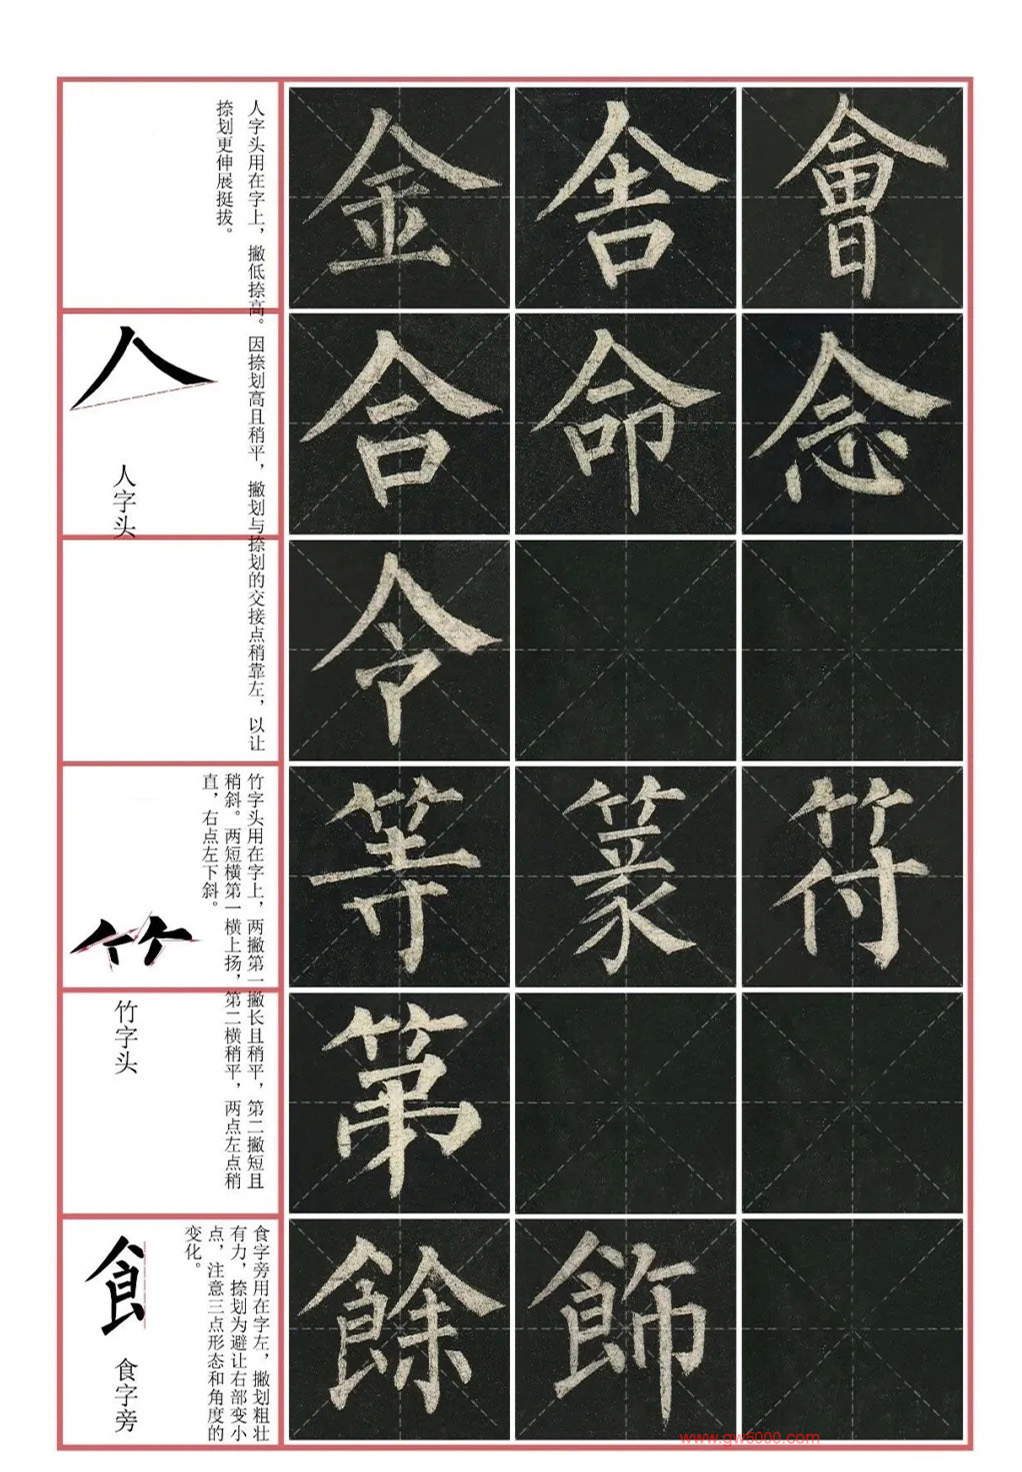 人字头用在字上，撇低捺高。因捺划高且稍平，撇划与捺划的交接点稍靠左，以让
捺划更伸展挺拔。
人
人字头
金 舍 會
合 命 念
令
竹字头用在字上，两撇第一撇长且稍平，第二撇短且
稍斜。两短横第一横上扬，第二横稍平，两点左点稍
直，右点左下斜。
竹字头
等 篆 符
第
食字旁用在字左，撇划粗壮
有力，捺划为避让右部变小
点，注意三点形态和角度的
变化。
飠
食字旁
餘 飾
www.gw5000.com